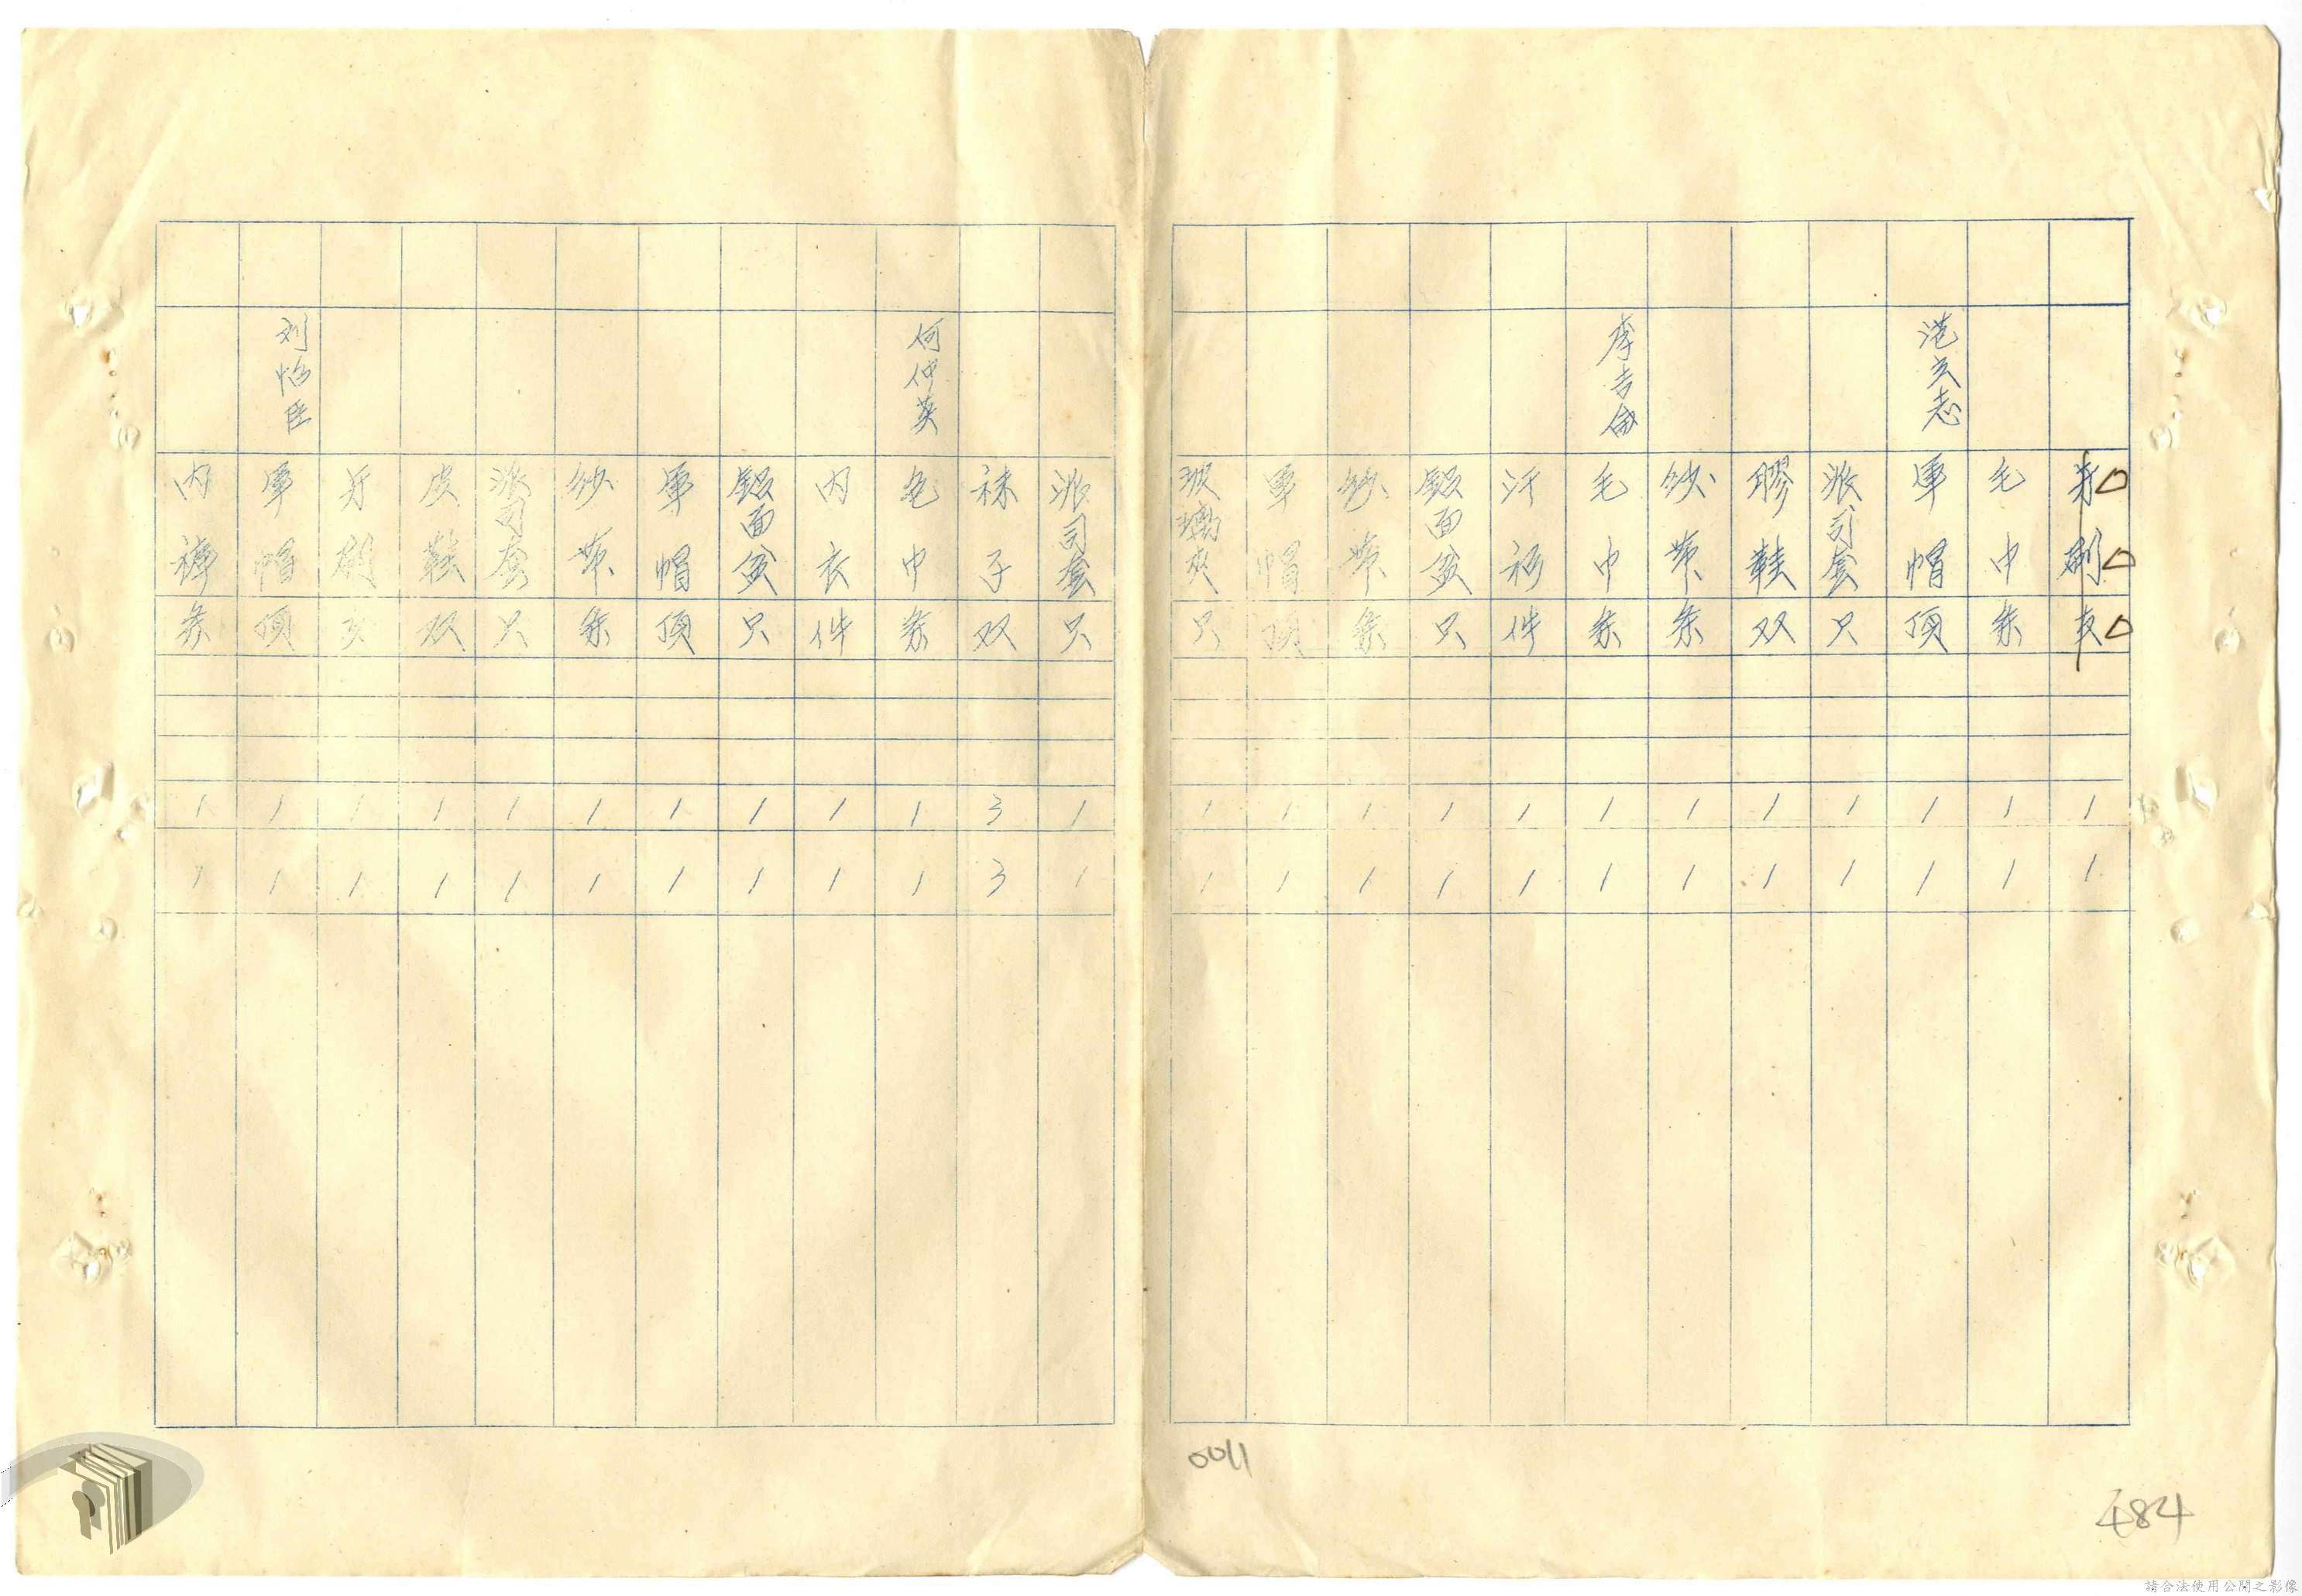 牙刷 支 1 1
毛巾 条 1 1
范文志 軍帽 頂 1 1
派司套 只 1 1
膠鞋 双 1 1
纱带 条 1 1
李吉 毛巾 条 1 1
汗衫 件 1 1
鋁面盆 只 1 1
纱带 条 1 1
軍帽 頂 1 1
玻璃夾 只 1 1
派司套 只 1 1
袜子 双 3 3
何仲英 毛巾 条 1 1
内衣 件 1 1
鋁面盆 只 1 1
軍帽 頂 1 1
纱带 条 1 1
派司套 只 1 1
皮鞋 双 1 1
牙刷 支 1 1
刘怡臣 軍帽 頂 1 1
内褲 条 1 1
0011
484
請合法使用公開之影像